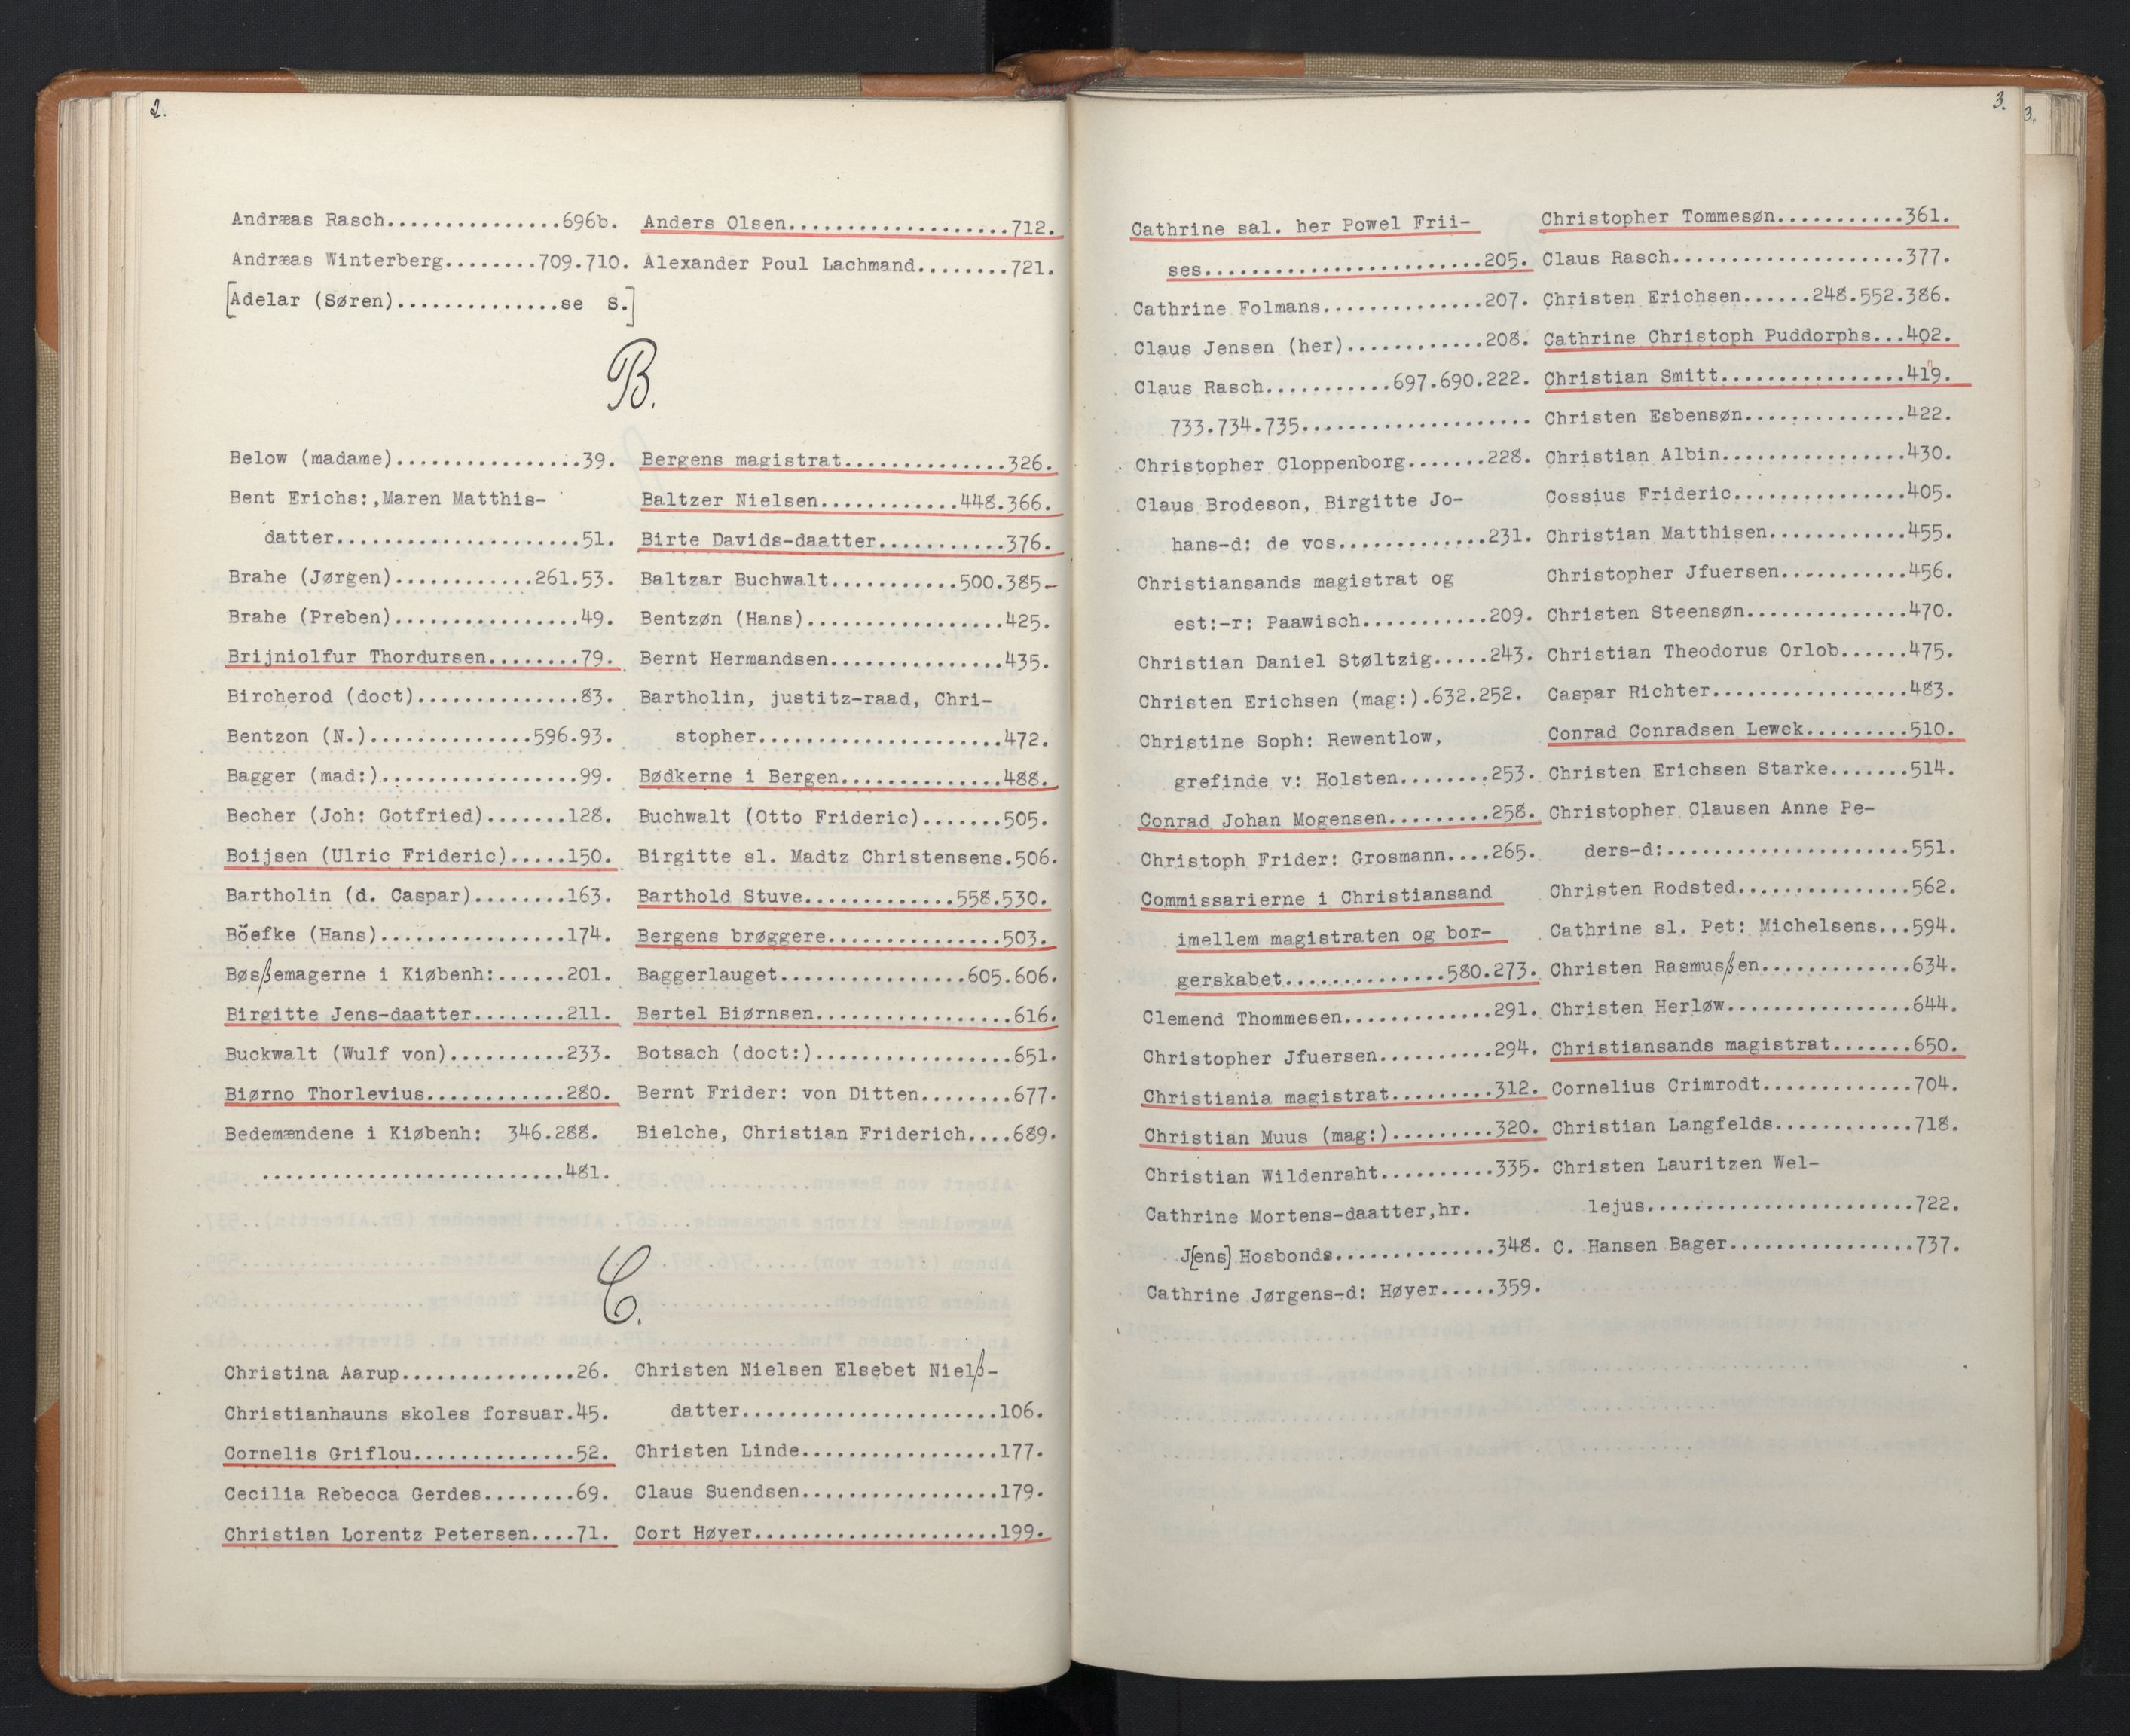 2.
Andræas Rasch................696b.
Andræas Winterberg........709.710.
[Adelar (Søren)..............se S.]
Anders Olsen....................712.
Alexander Poul Lachmand........721.
B.
Below (madame).................39.
Bent Erichs:,Maren Matthis-
datter......................51.
Brahe (Jørgen)............261.53.
Brahe (Preben).................49.
Brijniolfur Thordursen........79.
Bircherod (doct)...............83.
Bentzon (N.)...............596.93.
Bagger (mad:)..................99.
Becher (Joh: Gotfried).......128.
Boijsen (Ulric Frideric).....150.
Bartholin (d. Caspar)........163.
Böefke (Hans).................174.
Bøsßemagerne i Kiøbenh:......201.
Birgitte Jens-daatter........211.
Buckwalt (Wulf von)..........233.
Biørno Thorlevius............280.
Bedemændene i Kiøbenh: 346.288.
............................481.
Bergens magistrat...............326.
Baltzer Nielsen.............448.366.
Birte Davids-daatter............376.
Baltzar Buchwalt............500.385-
Bentzøn (Hans)..................425.
Bernt Hermandsen................435.
Bartholin, justitz-raad, Chri-
stopher......................472.
Bødkerne i Bergen...............488.
Buchwalt (Otto Frideric).......505.
Birgitte sl. Madtz Christensens.506.
Barthold Stuve..............558.530.
Bergens brøggere................503.
Baggerlauget.................605.606.
Bertel Biørnsen..................616.
Botsach (doct:)..................651.
Bernt Frider: von Ditten........677.
Bielche, Christian Friderich....689.
C.
Christina Aarup................26.
Christianhauns skoles forsuar.45.
Cornelis Griflou...............52.
Cecilia Rebecca Gerdes........69.
Christian Lorentz Petersen....71.
Christen Nielsen Elsebet Nielß-
datter.......................106.
Christen Linde..................177.
Claus Suendsen..................179.
Cort Høyer......................199.
3.
Cathrine sal. her Powel Frii-
ses.........................205.
Cathrine Folmans...............207.
Claus Jensen (her)............208.
Claus Rasch...........697.690.222.
733.734.735....................
Christopher Cloppenborg.......228.
Claus Brodeson, Birgitte Jo-
hans-d: de vos.............231.
Christiansands magistrat og
est:-r: Paawisch...........209.
Christian Daniel Støltzig.....243.
Christen Erichsen (mag:).632.252.
Christine Soph: Rewentlow,
grefinde v: Holsten........253.
Conrad Johan Mogensen.........258.
Christoph Frider: Grosmann....265.
Commissarierne i Christiansand
imellem magistraten og bor-
gerskabet...............580.273.
Clemend Thommesen.............291.
Christopher Jfuersen..........294.
Christiania magistrat.........312.
Christian Muus (mag:).........320.
Christian Wildenraht..........335.
Cathrine Mortens-daatter,hr.
J[ens] Hosbonds..............348.
Cathrine Jørgens-d: Høyer.....359.
Christopher Tommesøn...........361.
Claus Rasch.....................377.
Christen Erichsen......248.552.386.
Cathrine Christoph Puddorphs...402.
Christian Smitt.................419.
Christen Esbensøn...............422.
Christian Albin.................430.
Cossius Frideric................405.
Christian Matthisen.............455.
Christopher Jfuersen............456.
Christen Steensøn...............470.
Christian Theodorus Orlob......475.
Caspar Richter..................483.
Conrad Conradsen Lewck.........510.
Christen Erichsen Starke.......514.
Christopher Clausen Anne Pe-
ders-d:......................551.
Christen Rodsted................562.
Cathrine sl. Pet: Michelsens...594.
Christen Rasmusßen.............634.
Christen Herløw.................644.
Christiansands magistrat.......650.
Cornelius Crimrodt..............704.
Christian Langfelds............718.
Christen Lauritzen Wel-
lejus........................722.
C. Hansen Bager.................737.
3.